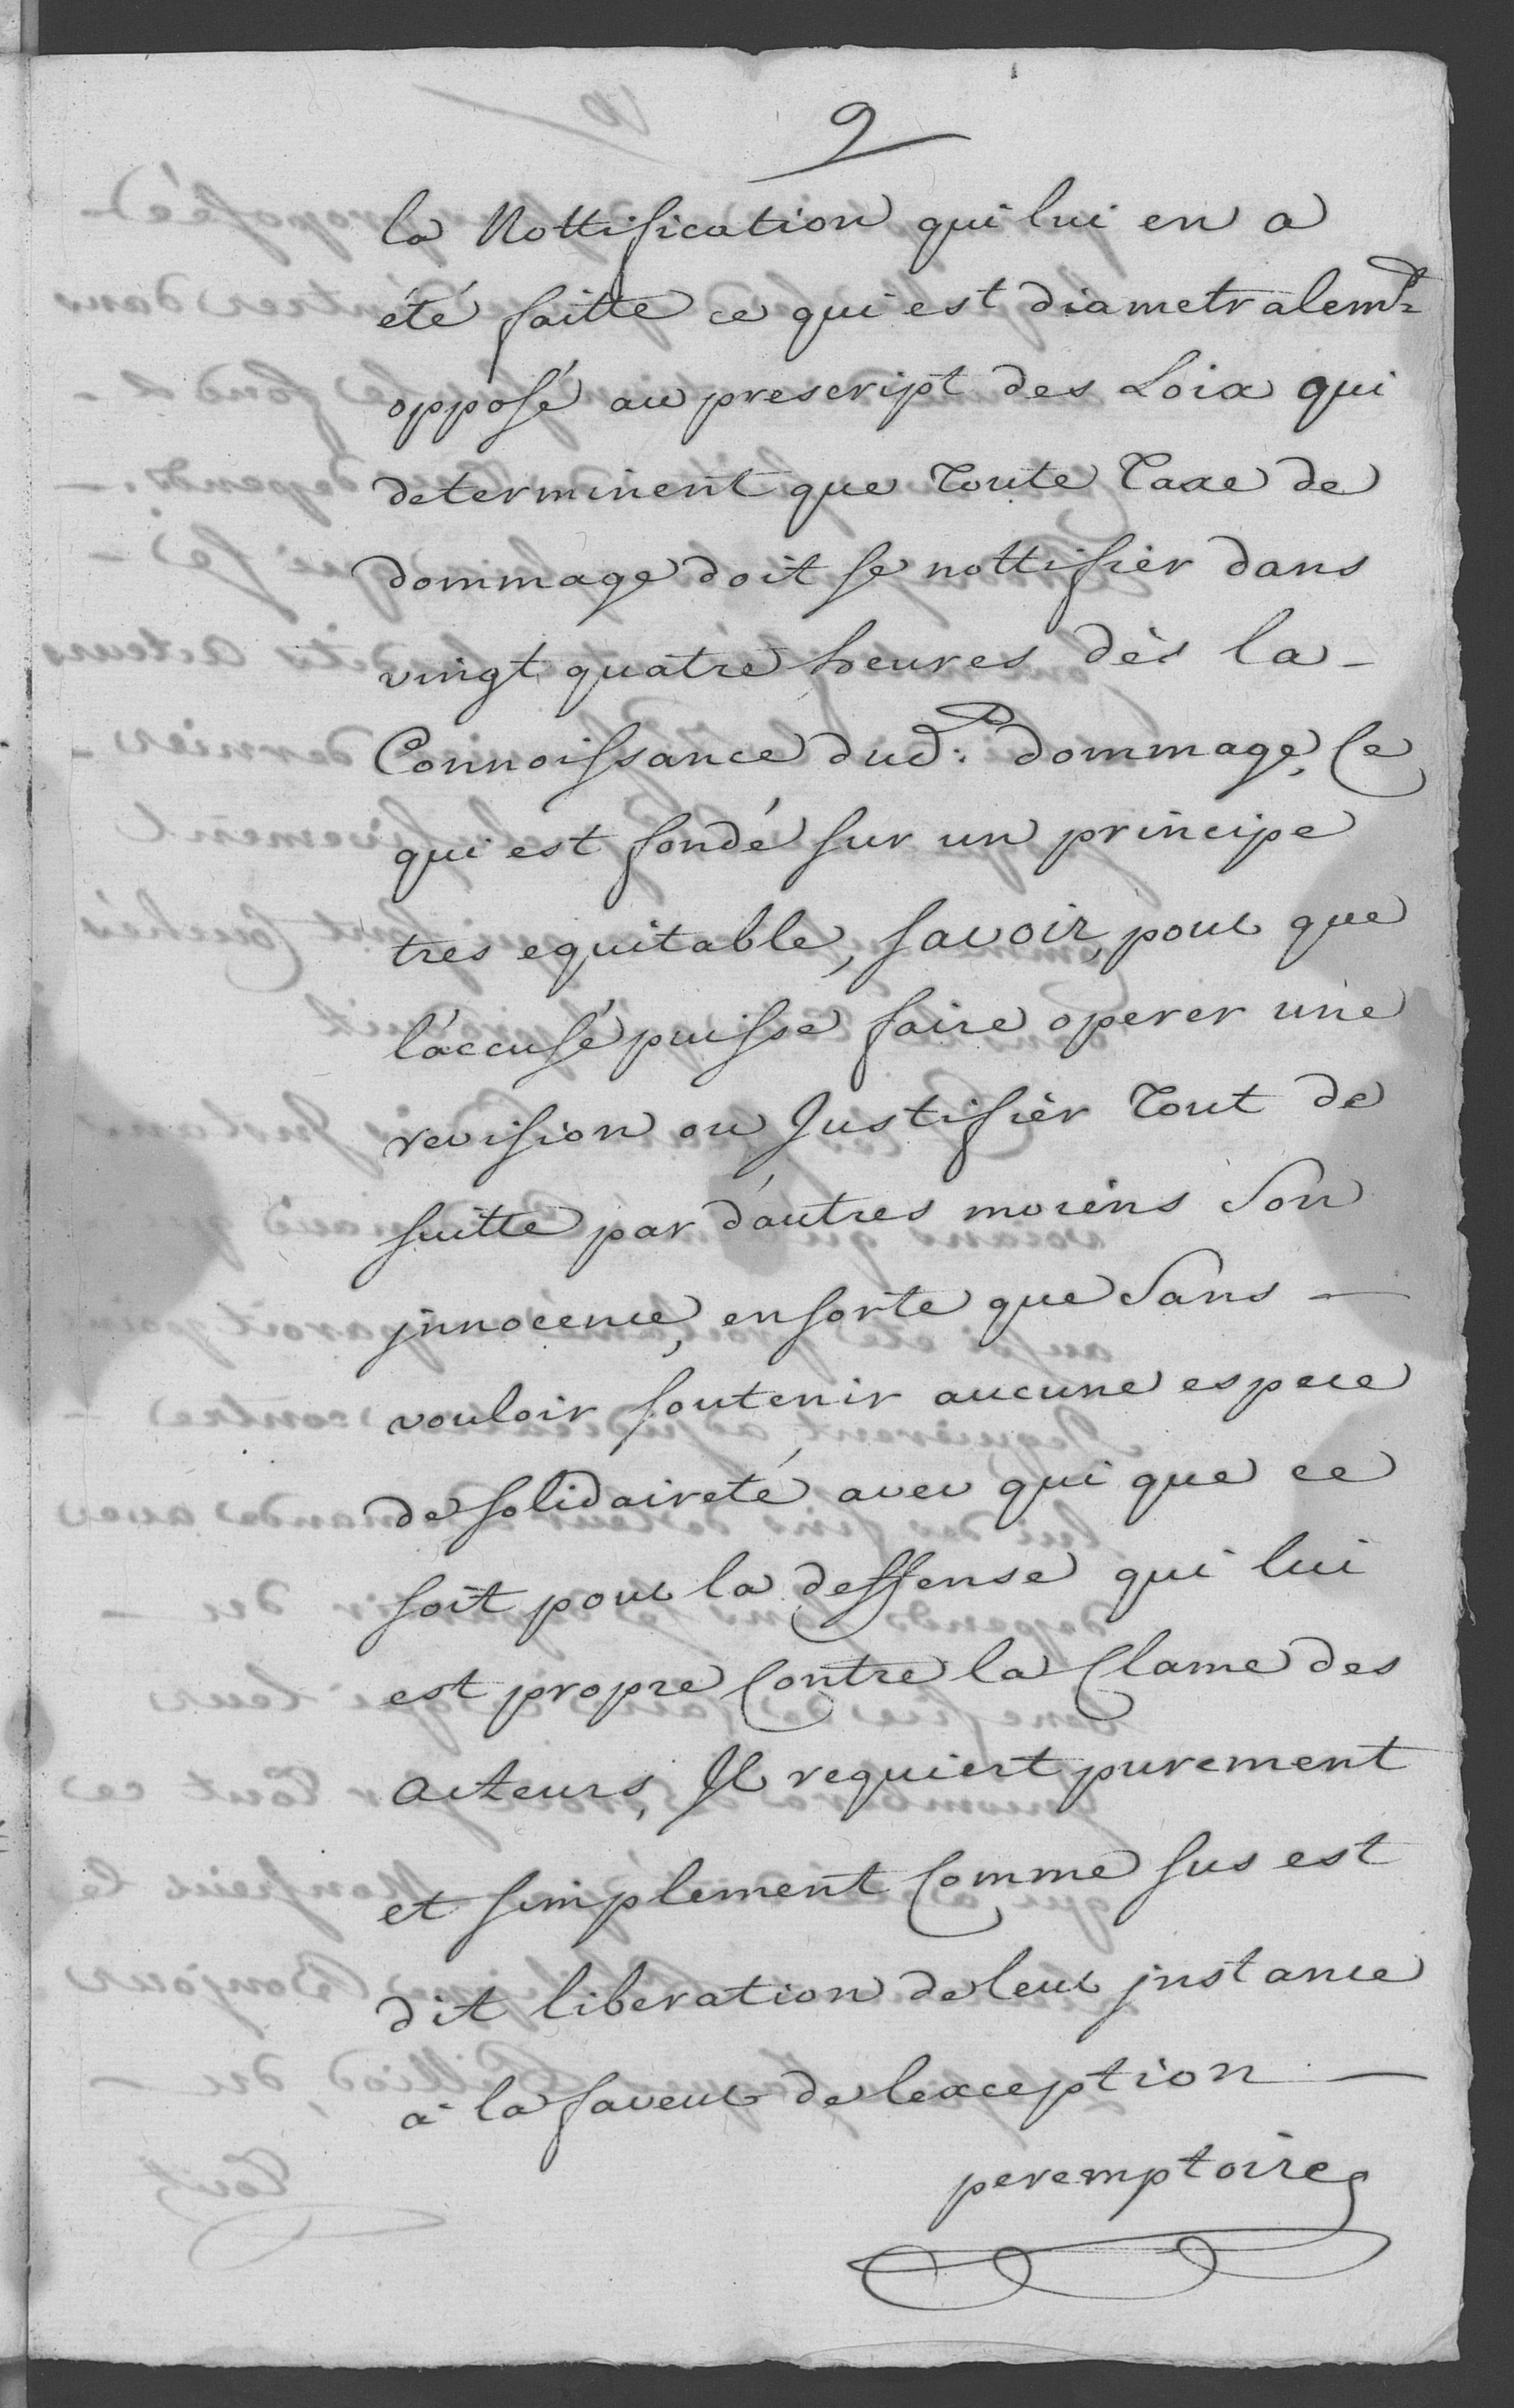 9
la Nottification qui lui en a
été faitte ce qui est diametralemt
opposé au prescript des Loix qui
determinent que Toute Taxe de
dommage doit se nottifier dans
vingt quatre heures dès la -
Connoissance dud: dommage, Ce
qui est fondé sur un principe
tres equitable, savoir, pour que
l'accusé puisse faire operer une
revision ou Justifier Tout de
suitte par d'autres moiens Son
innocence, ensorte que Sans -
vouloir soutenir aucune espece
de solidaireté avec qui que ce
soit pour la deffense qui lui
est propre Contre la Clame des
acteurs, Il requiert purement
et simplement Comme sus est
dit liberation de leur instance
a la faveur de lexception -
peremptoire